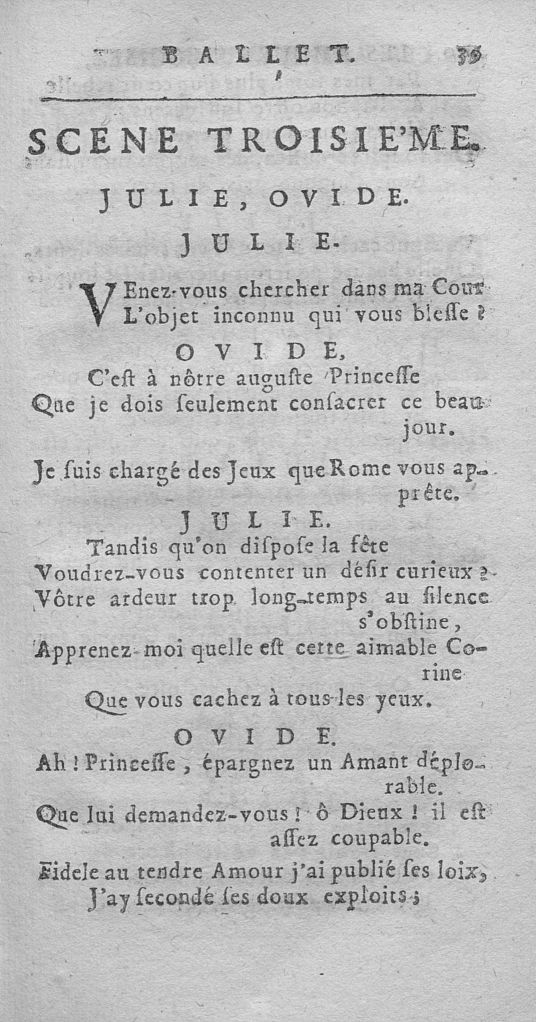 BALLET. 39
SCENE TROISIE'ME.
JULIE, OVIDE.
JULIE.
VEnez-vous chercher dans ma Cour
L'objet inconnu qui vous blesse ?
OVIDE,
C'est à nôtre auguste Princesse
Que je dois seulement consacrer ce beau
jour.
Je suis chargé des Jeux que Rome vous ap-
prête.
JULIE.
Tandis qu'on dispose la fête
Voudrez-vous contenter un désir curieux ?
Vôtre ardeur trop long-temps au silence
s'obstine,
Apprenez-moi quelle est cette aimable Co-
rine
Que vous cachez à tous les yeux.
OVIDE.
Ah ! Princesse, épargnez un Amant déplo-
rable.
Que lui demandez-vous ! ô Dieux ! il est
assez coupable.
Fidele au tendre Amour j'ai publié ses loix,
J'ay secondé ses doux exploits ;